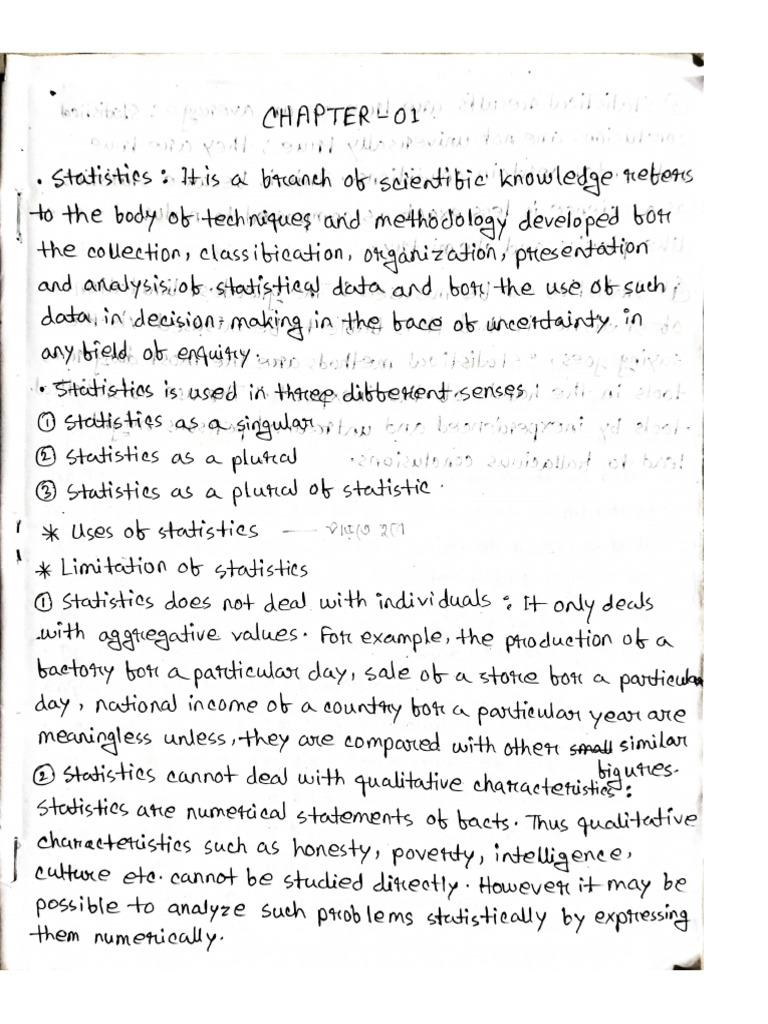 CHAPTER-01
• Statistics : It is a branch of scientific knowledge refers
to the body of techniques and methodology developed for
the collection, classification, organization, presentation
and analysis of statistical data and for the use of such
data, in decision-making in the face of uncertainty in
any field of enquiry.
• Statistics is used in three different senses :
① Statistics as a singular
② Statistics as a plural
③ Statistics as a plural of statistic.
* Uses of statistics
* Limitation of statistics
① Statistics does not deal with individuals : It only deals
with aggregative values. For example, the production of a
factory for a particular day, sale of a store for a particular
day, national income of a country for a particular year are
meaningless unless, they are compared with other small similar
figures.
② Statistics cannot deal with qualitative characteristics :
Statistics are numerical statements of facts. Thus qualitative
characteristics such as honesty, poverty, intelligence,
culture etc. cannot be studied directly. However it may be
possible to analyze such problems statistically by expressing
them numerically.